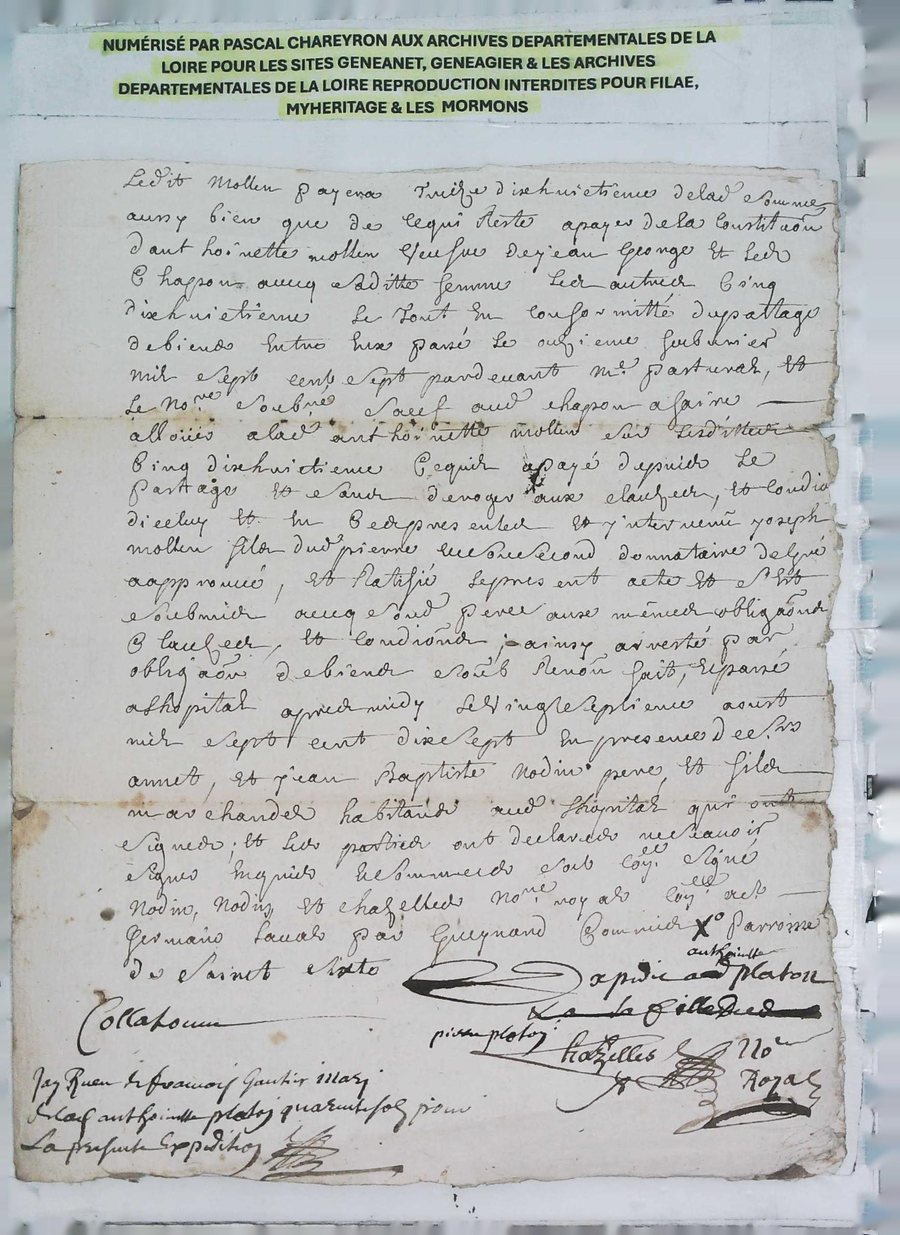 NUMÉRISÉ PAR PASCAL CHAREYRON AUX ARCHIVES DEPARTEMENTALES DE LA
LOIRE POUR LES SITES GENEANET, GENEAGIER & LES ARCHIVES
DEPARTEMENTALES DE LA LOIRE REPRODUCTION INTERDITES POUR FILAE,
MYHERITAGE & LES MORMONS
Ledit Mollen payera Treize dixhuictieme delad somme
aussy bien que de cequi Reste apayer dela Constitution
danthoinette mollen veufue dejean George Et Led
Chapon aueq saditte femme Les autres Cinq
dixhuictieme Le Tout En Conformitté dupartage
debiens Entre Eux passé Le onzieme
mil sept cent sept pardeuant Me pasturel, Et
Le Nore soubné sauf aud chapon afaire
allouer alad anthoinette mollen sur Lesdittes
Cinq dixhuictieme Cequil apayé depuis Le
Partage Et sans deroger aux clauzes, Et Condio
diceluy Et En Ces presentes Est yinteruenu joseph
mollen fils dud pierre second donnataire
aapprouué, Et Ratifié Lepresent acte Et sEst
soubmis aueq sond pere aux mêmes obligãons
Clauzes, Et Condiõns; ainsy arresté par
obligãon debiens soub Renõn fait, Et passé
alhopital apres midy Le Vingtseptieme aoust
mil sept cent dixsept En presence de srs
annet, Et jean Baptiste Nodin pere, Et fils
marchandes habitants aud Lhopital qui ont
signes; Et Les parties ont declarees nesçauoir
signer Enquis Et sommees soub Coyee signé
Nodin, Nodin, Et chazelles Nore royal Coyee
Germain Laual par Gueynard Commis Xo Parroisse
de Sainct sixte
anthoinette
platon
Collatonne
pierre platon
chazelles Nore
Royal
Jay Receu de francois Gautier mari
delad anthoinette platon quarante sol pour
La presente Expedition